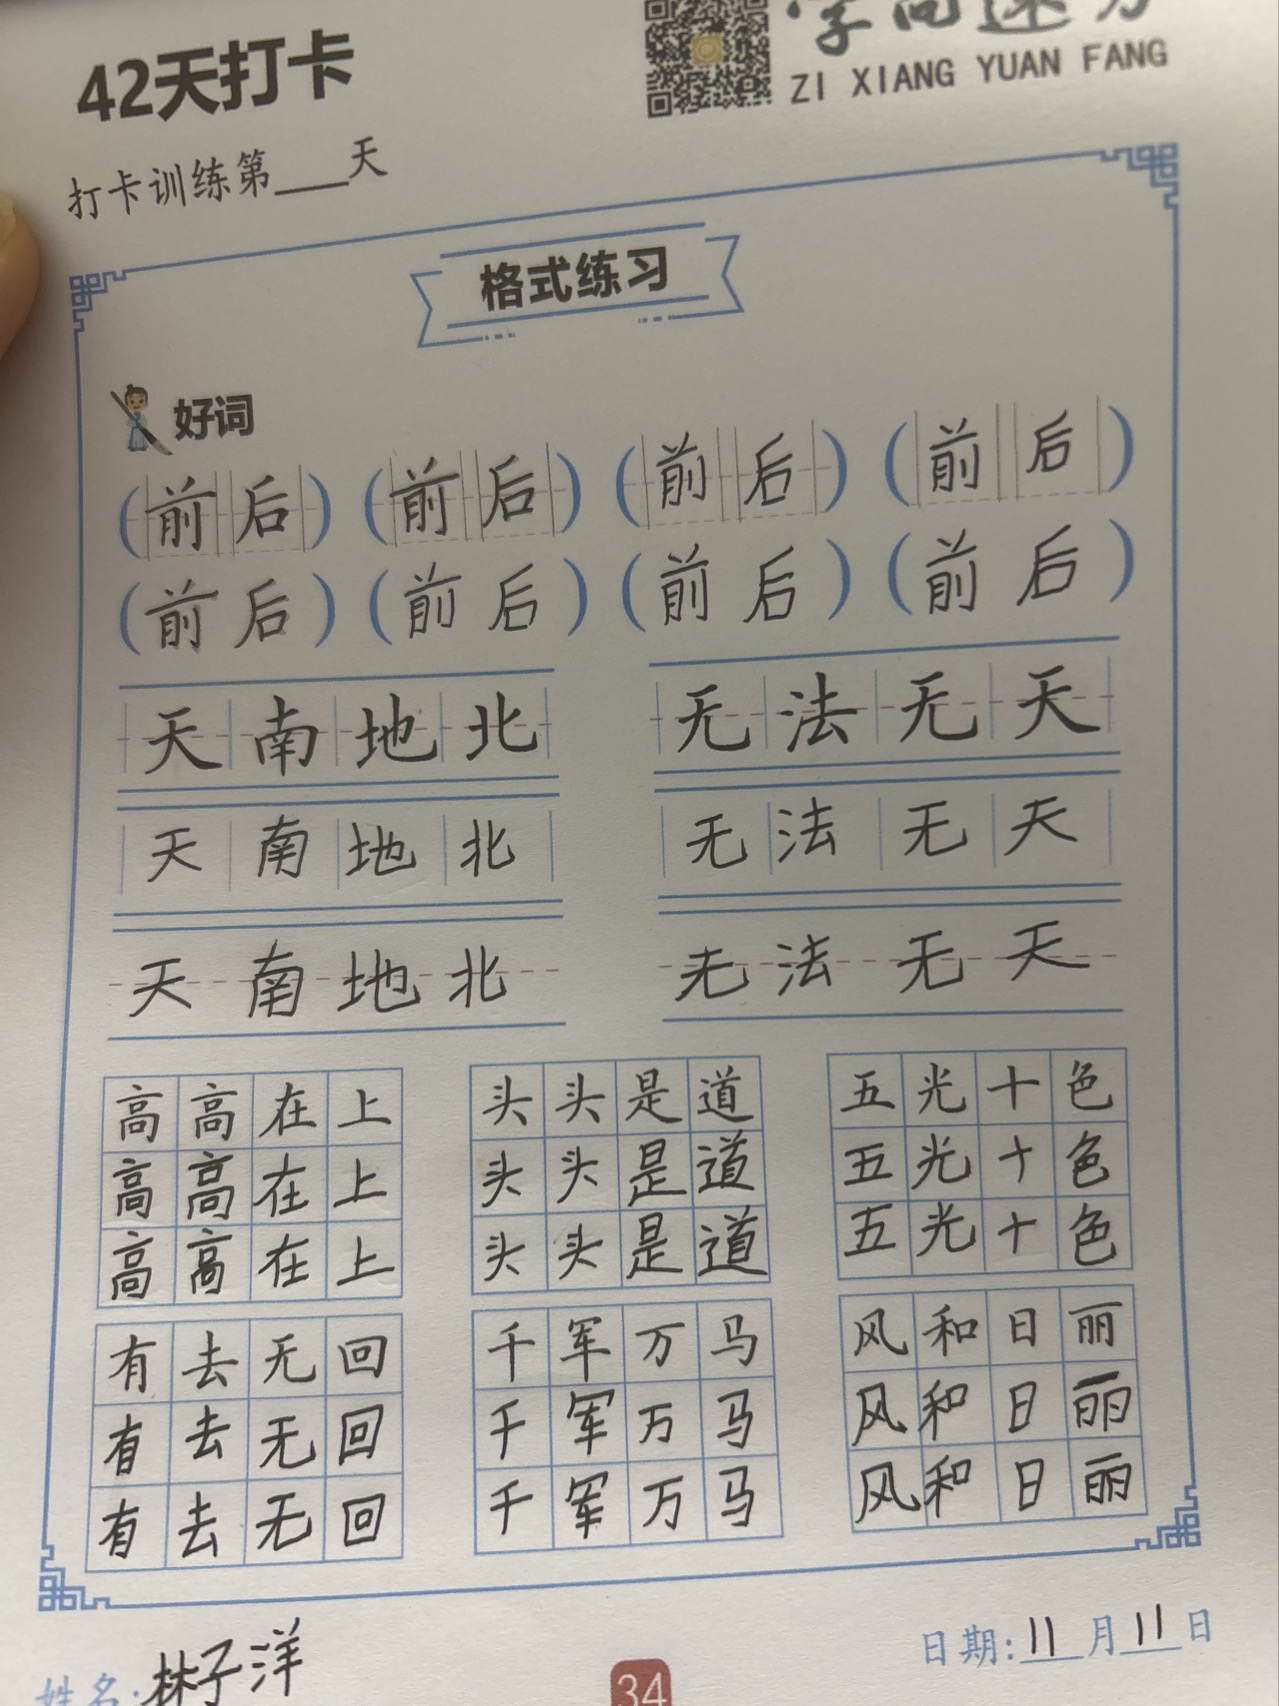 42天打卡
ZI XIANG YUAN FANG
打卡训练第___天
格式练习
好词
(前后) (前后) (前后) (前后)
(前后) (前后) (前后) (前后)
天南地北 无法无天
天南地北 无法无天
天南地北 无法无天
高高在上 头头是道 五光十色
高高在上 头头是道 五光十色
高高在上 头头是道 五光十色
有去无回 千军万马 风和日丽
有去无回 千军万马 风和日丽
有去无回 千军万马 风和日丽
姓名:林子洋 日期:11月11日
34